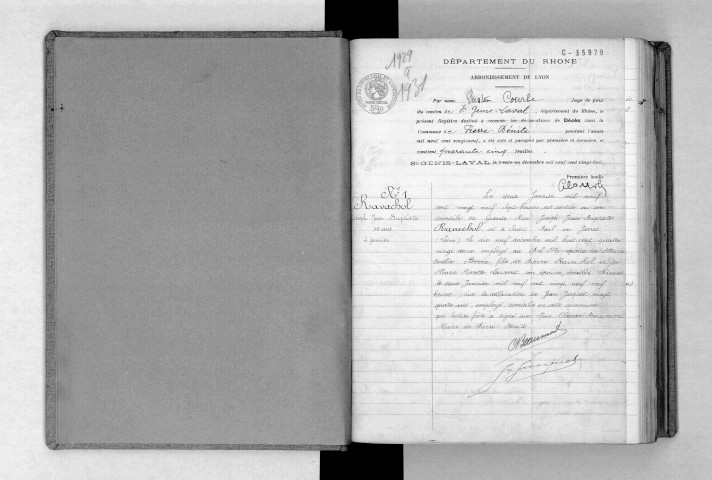 C-35979
1929
à
1931
DÉPARTEMENT DU RHONE
ARRONDISSEMENT DE LYON
Par nous Courbe Juge de paix
du canton de St Genis-Laval, département du Rhône, le
présent Registre destiné à recevoir les déclarations de Décès dans la
Commune de Pierre-Bénite pendant l'année
mil neuf cent vingt-neuf, a été coté et paraphé par première et dernière, et
contient quarante cinq feuilles.
ST-GENIS-LAVAL, le trente-un décembre mil neuf cent vingt-huit.
Première feuille
N° 1
Ravachol
Joseph Jean Baptiste
46 ans
2 janvier
Le deux Janvier mil neuf
cent vingt neuf sept heures est décédé en son
domicile Grande Rue Joseph Jean Baptiste
Ravachol, né à Saint Paul en Jarez
(Loire) le dix neuf décembre mil huit cent quatre
vingt deux employé au époux de Marie
fils de Pierre Ravachol et de
Marie Laurent son épouse, décédés. Dressé
le deux Janvier mil neuf cent vingt neuf neuf
heures, sur la déclaration de Jean Jacquet vingt
quatre ans, employé, domicilié en cette commune
qui lecture faite a signé avec Nous Claude Beaumont
Maire de Pierre Bénite.
Beaumont